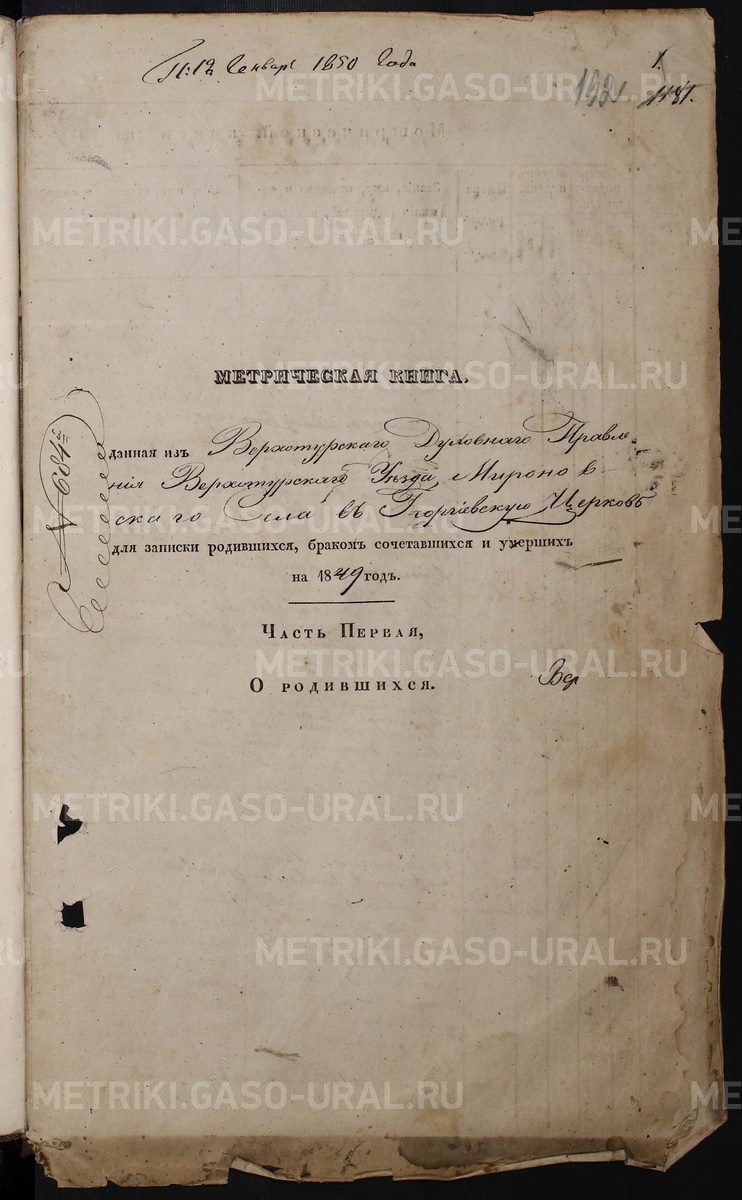 П: 12 Генваря 1850 Года
1.
МЕТРИЧЕСКАЯ КНИГА,
данная изъ Верхотурскаго Духовнаго Правле-
нія Верхотурскаго Уѣзда, Миронов
скаго Села въ Георгіевскую Церковь
для записки родившихся, бракомъ сочетавшихся и умершихъ
на 1849 годъ.
Часть Первая,
О родившихся.
Вер
METRIKI.GASO-URAL.RU
METRIKI.GASO-URAL.RU
METRIKI.GASO-URAL.RU
METRIKI.GASO-URAL.RU
METRIKI.GASO-URAL.RU
METRIKI.GASO-URAL.RU
METRIKI.GASO-URAL.RU
METRIKI.GASO-URAL.RU